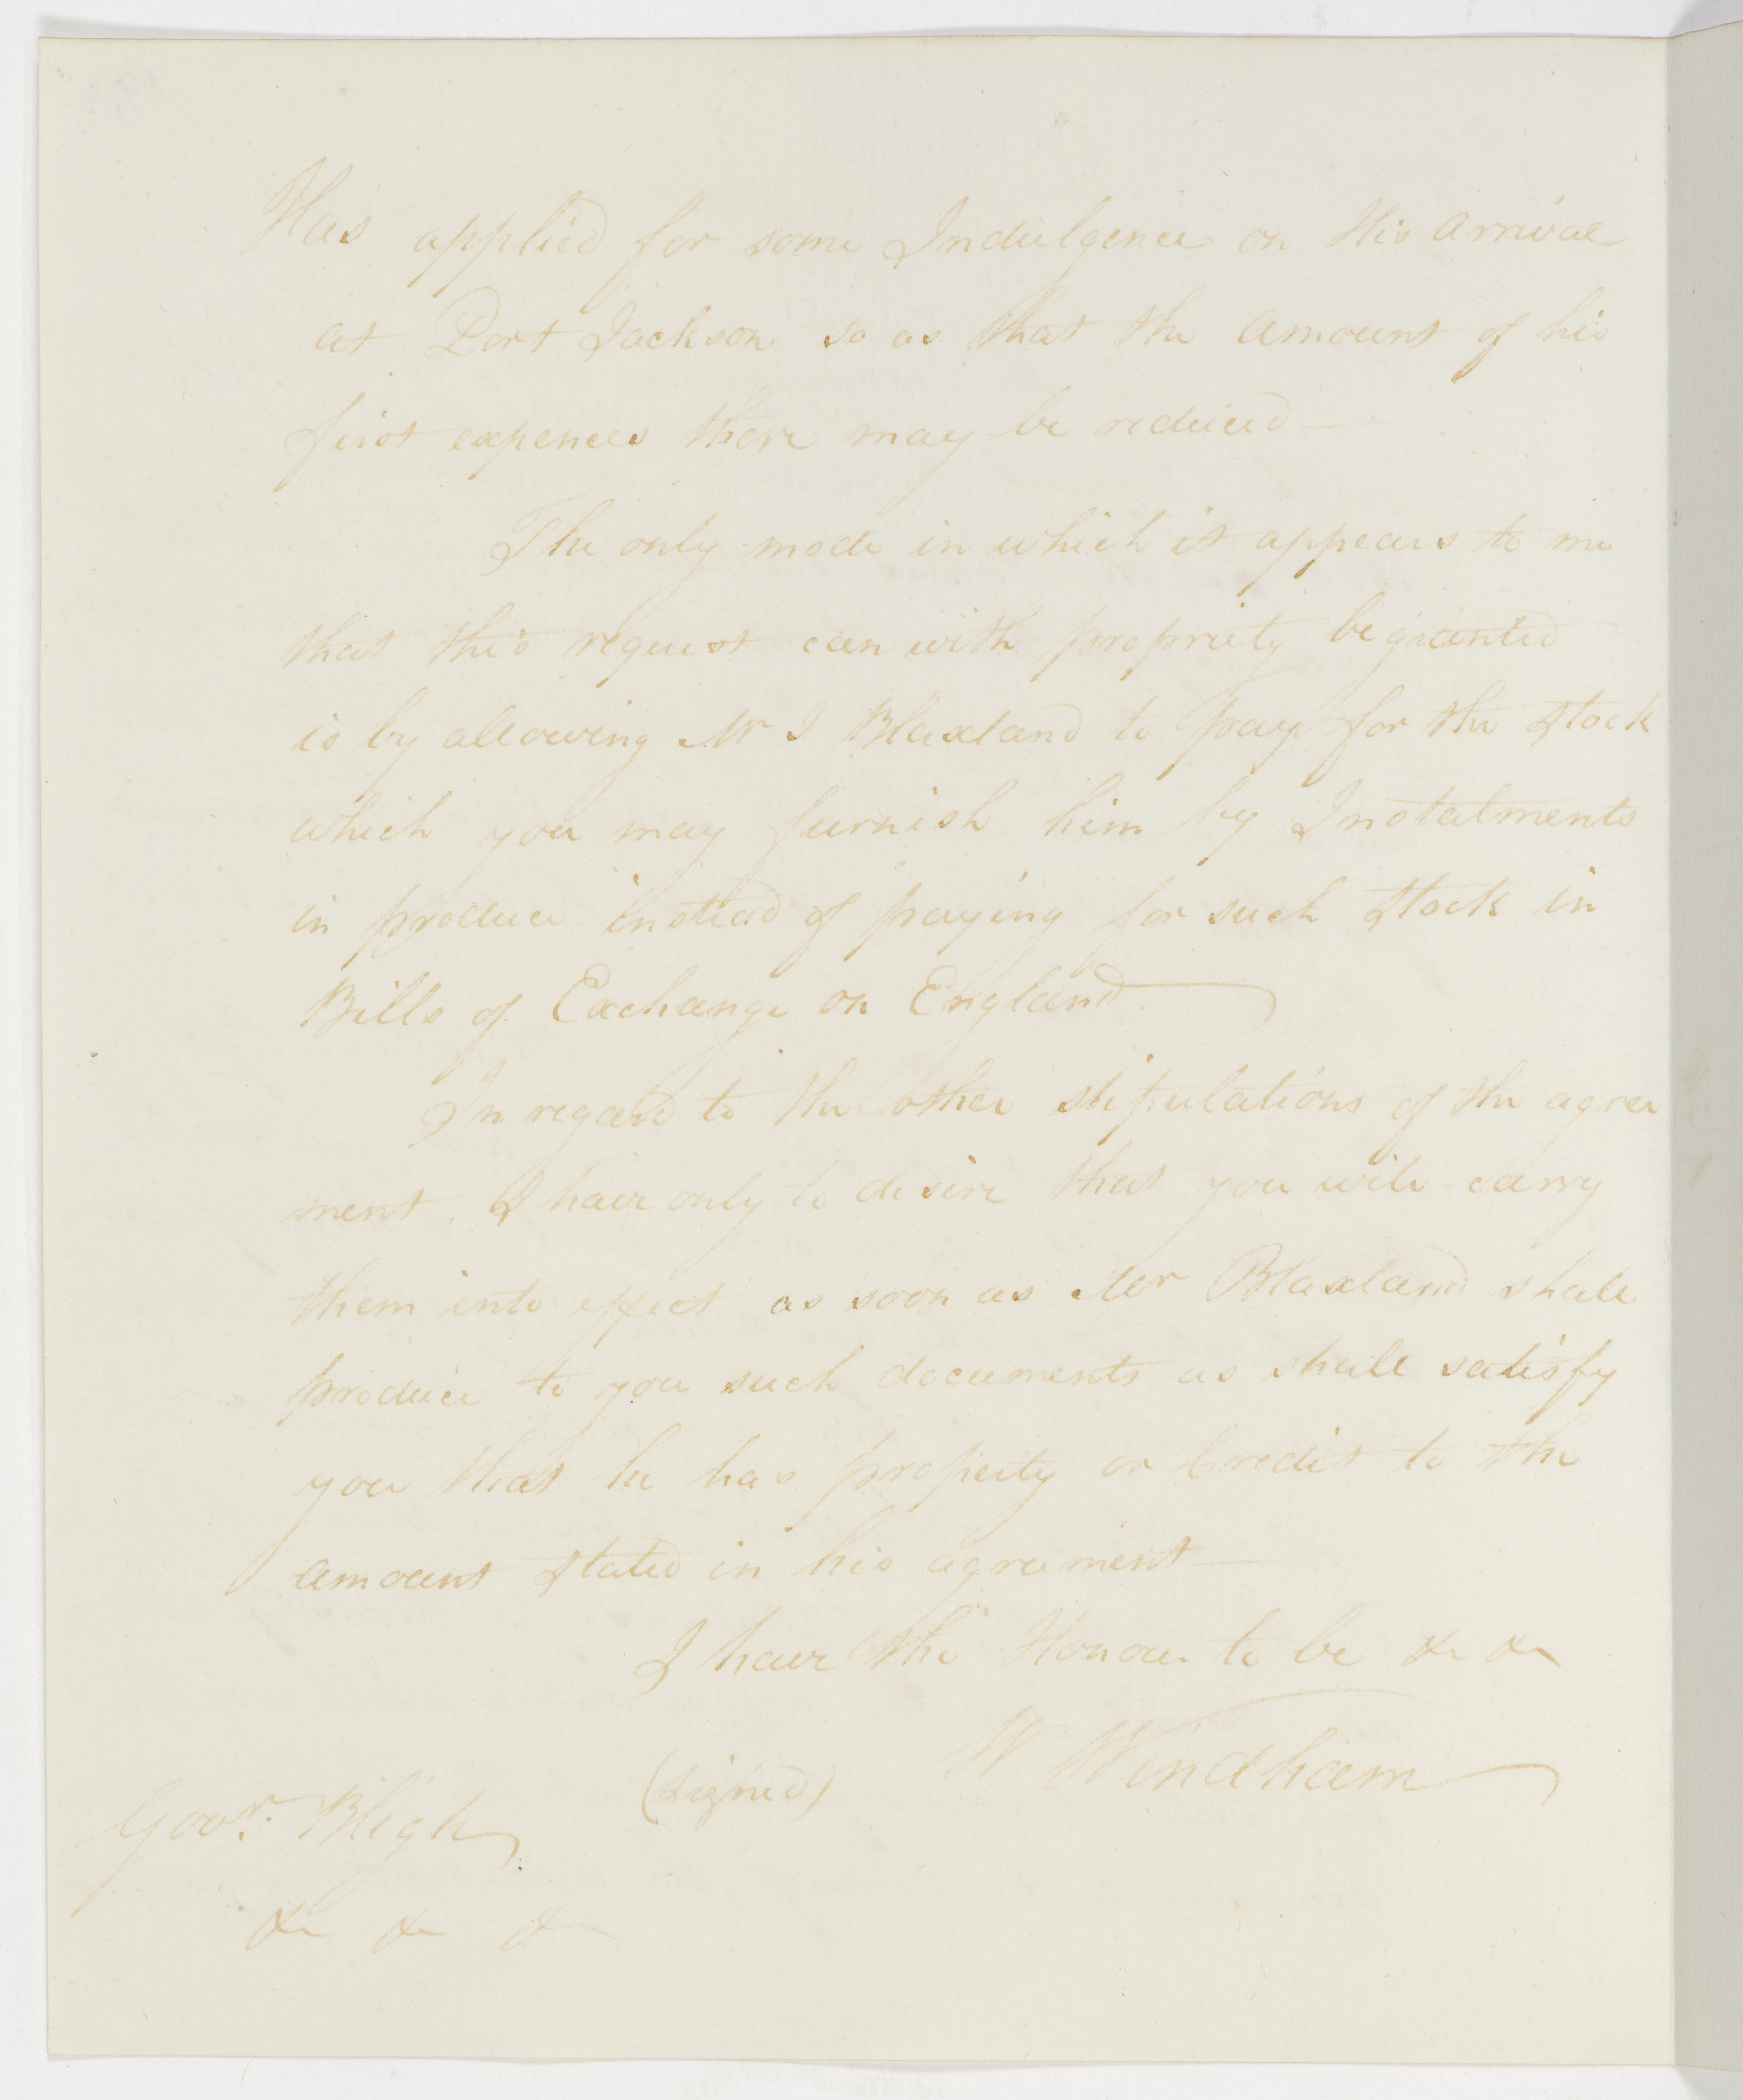 Has applied for some Indulgence on His arrival
at Port Jackson so as that the amount of his
first expences there may be reduced —
The only mode in which it appears to me
that this request can with propriety be granted
is by allowing Mr J Blaxland to pay for the Stock
which you may furnish him by Instalments
in produce instead of paying for such Stock in
Bills of Exchange on England —
In regard to the other stipulations of the agree
ment, I have only to desire that you will carry
them into effect as soon as Mr Blaxland shall
produce to you such documents as shall satisfy
you that he has property or Credit to the
amount stated in his agreement —
I have the Honour to be &c &c
(Signed) W Windham
Govr. Bligh
&c &c &c